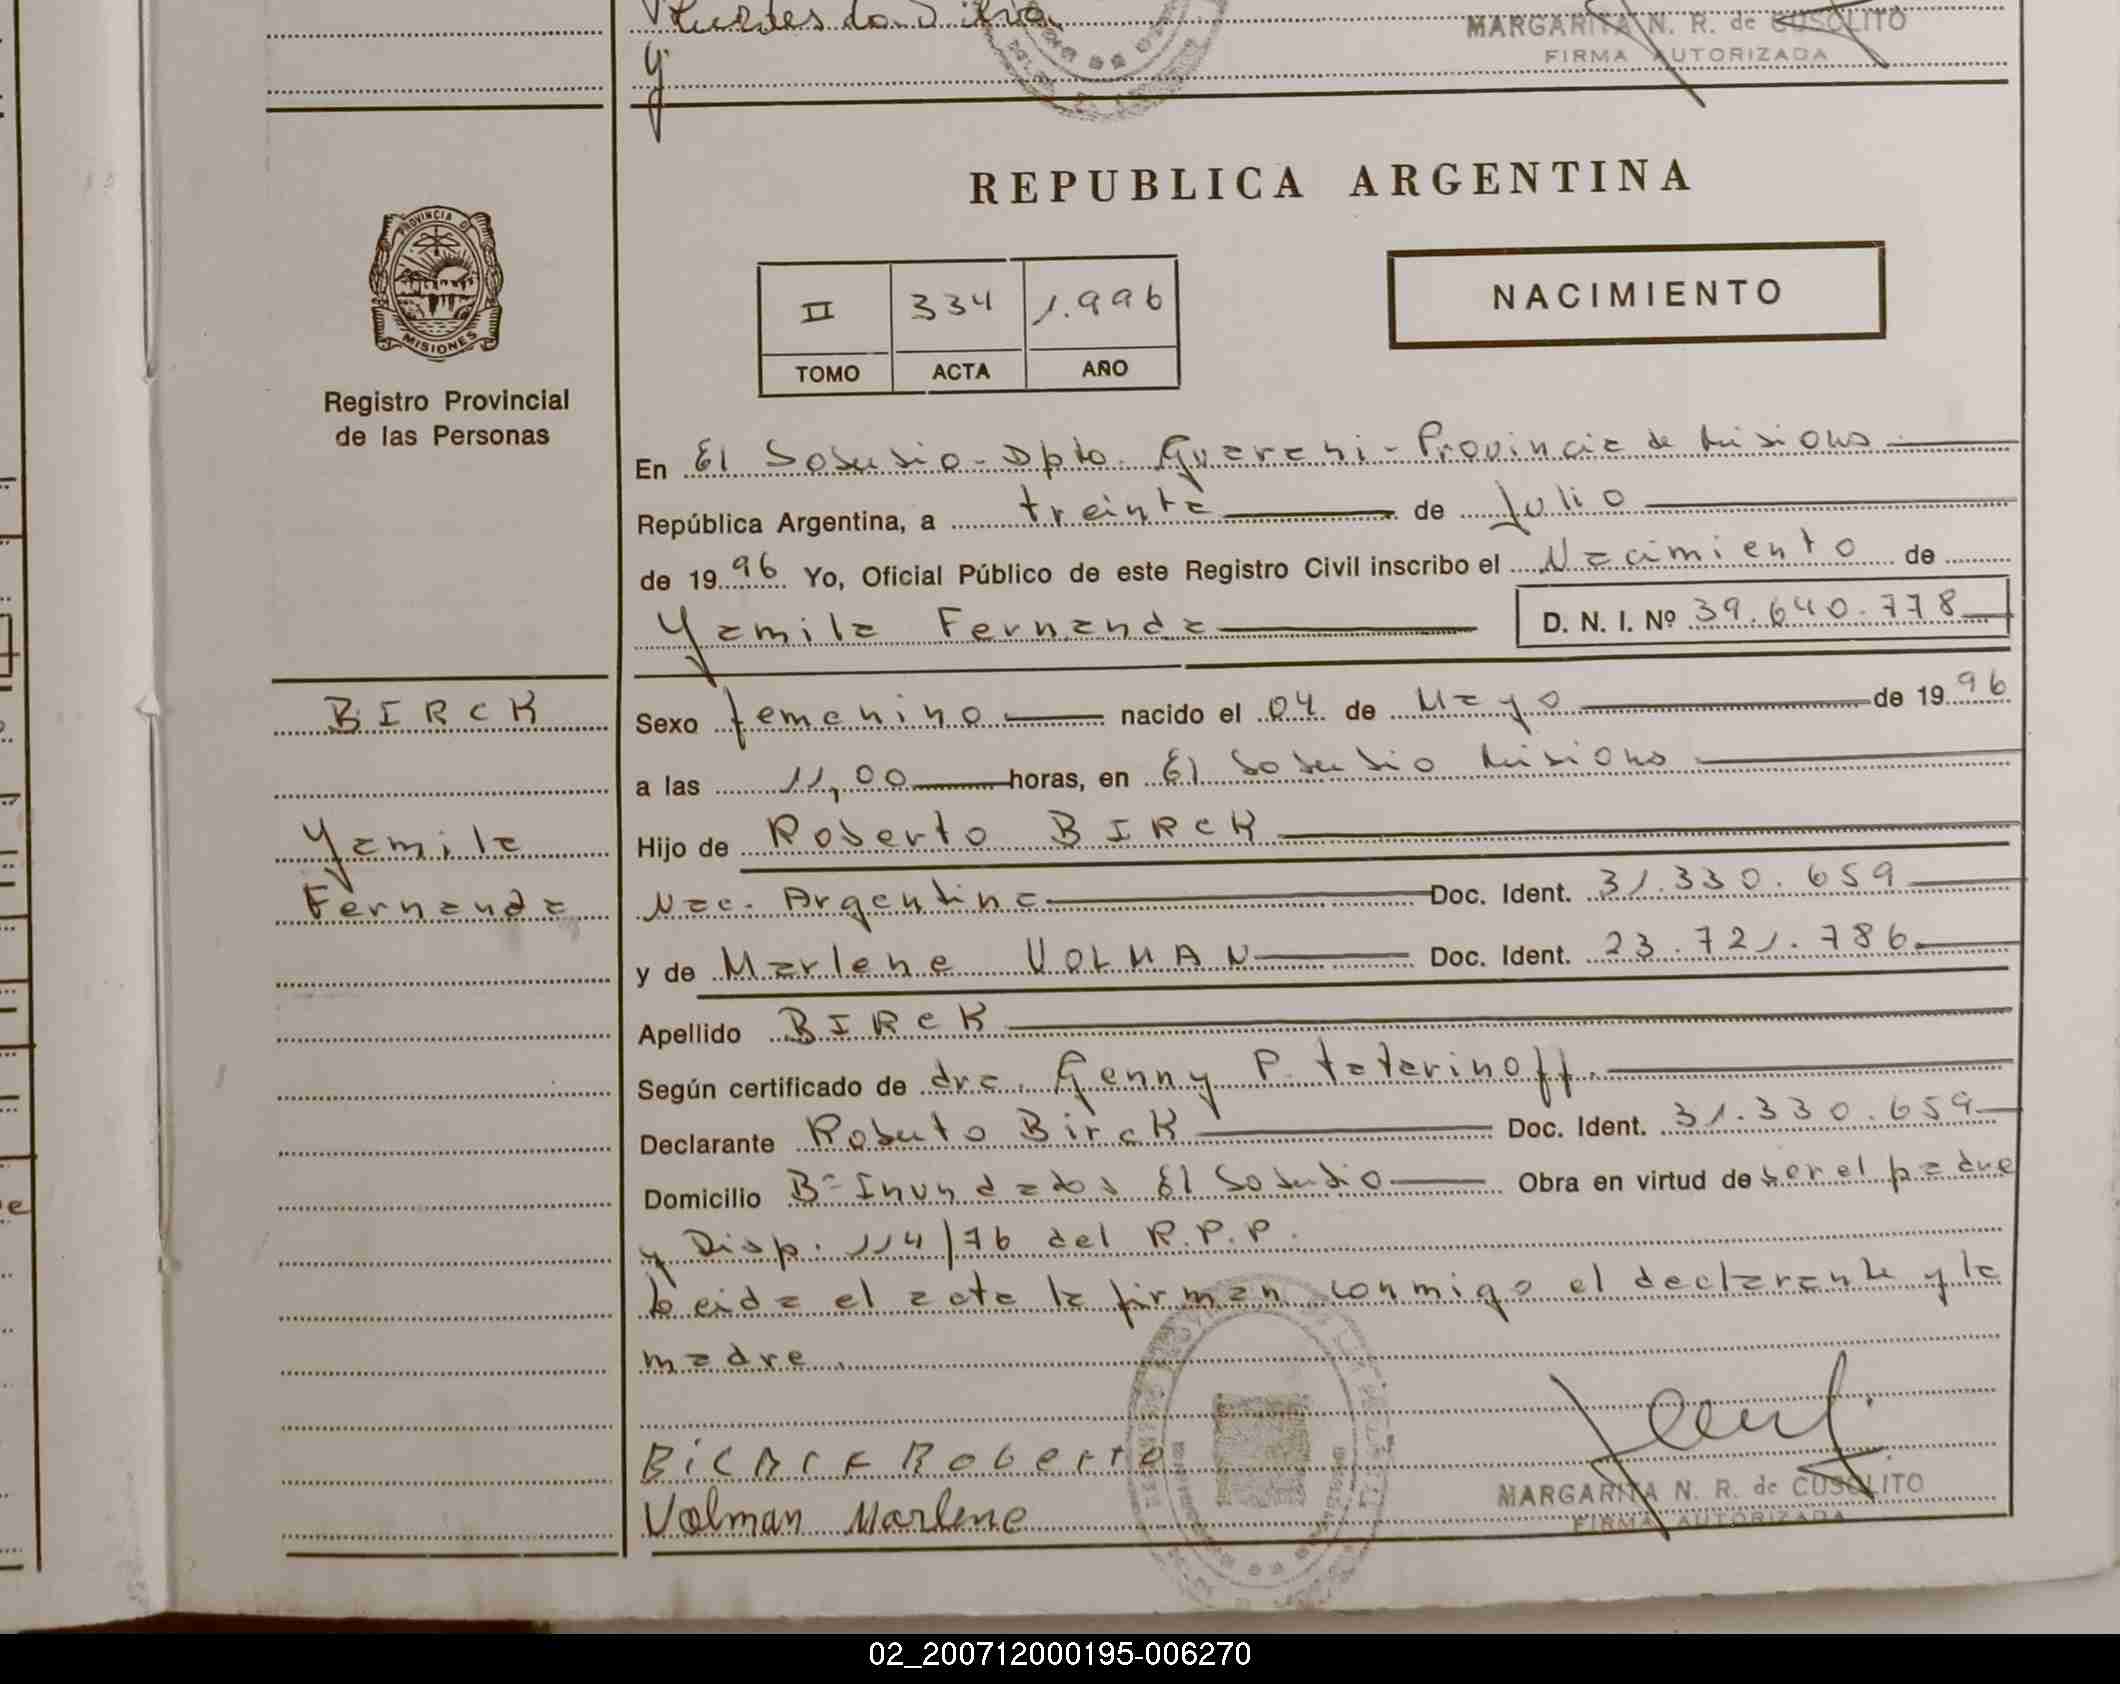 MARGARITA N. R. de CUSOLITO
FIRMA AUTORIZADA
y
PROVINCIA DE
MISIONES
Registro Provincial
de las Personas
REPUBLICA ARGENTINA
II 334 1.996
TOMO ACTA AÑO
NACIMIENTO
En El Soberbio - Dpto. Guarani - Provincia de Misiones
República Argentina, a treinta de Julio
de 1996 Yo, Oficial Público de este Registro Civil inscribo el Nacimiento de
Yamila Fernanda D. N. I. Nº 39.640.778
BIRCK
Yamila
Fernanda
Sexo femenino nacido el 04 de Mayo de 1996
a las 11,00 horas, en El Soberbio Misiones
Hijo de Roberto BIRCK
Nac. Argentina Doc. Ident. 31.330.659
y de Marlene VOLMAN Doc. Ident. 23.721.786
Apellido BIRCK
Según certificado de dra. Genny P. Tatarinoff.
Declarante Roberto Birck Doc. Ident. 31.330.659
Domicilio Bº Inundados El Soberbio Obra en virtud de ser el padre
y Disp. 114/76 del R.P.P.
Leida el acta la firman conmigo el declarante y la
madre.
Roberto
Volman Marlene
MARGARITA N. R. de CUSOLITO
FIRMA AUTORIZADA
02_200712000195-006270